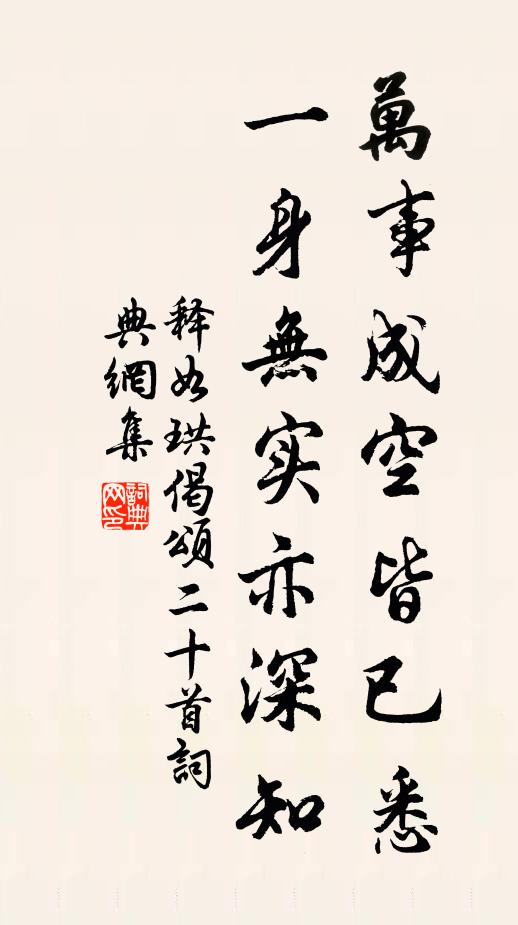 萬事成空皆已悉
一身無实亦深知
释如珙偈頌二十首詞
典網集
詞典网印